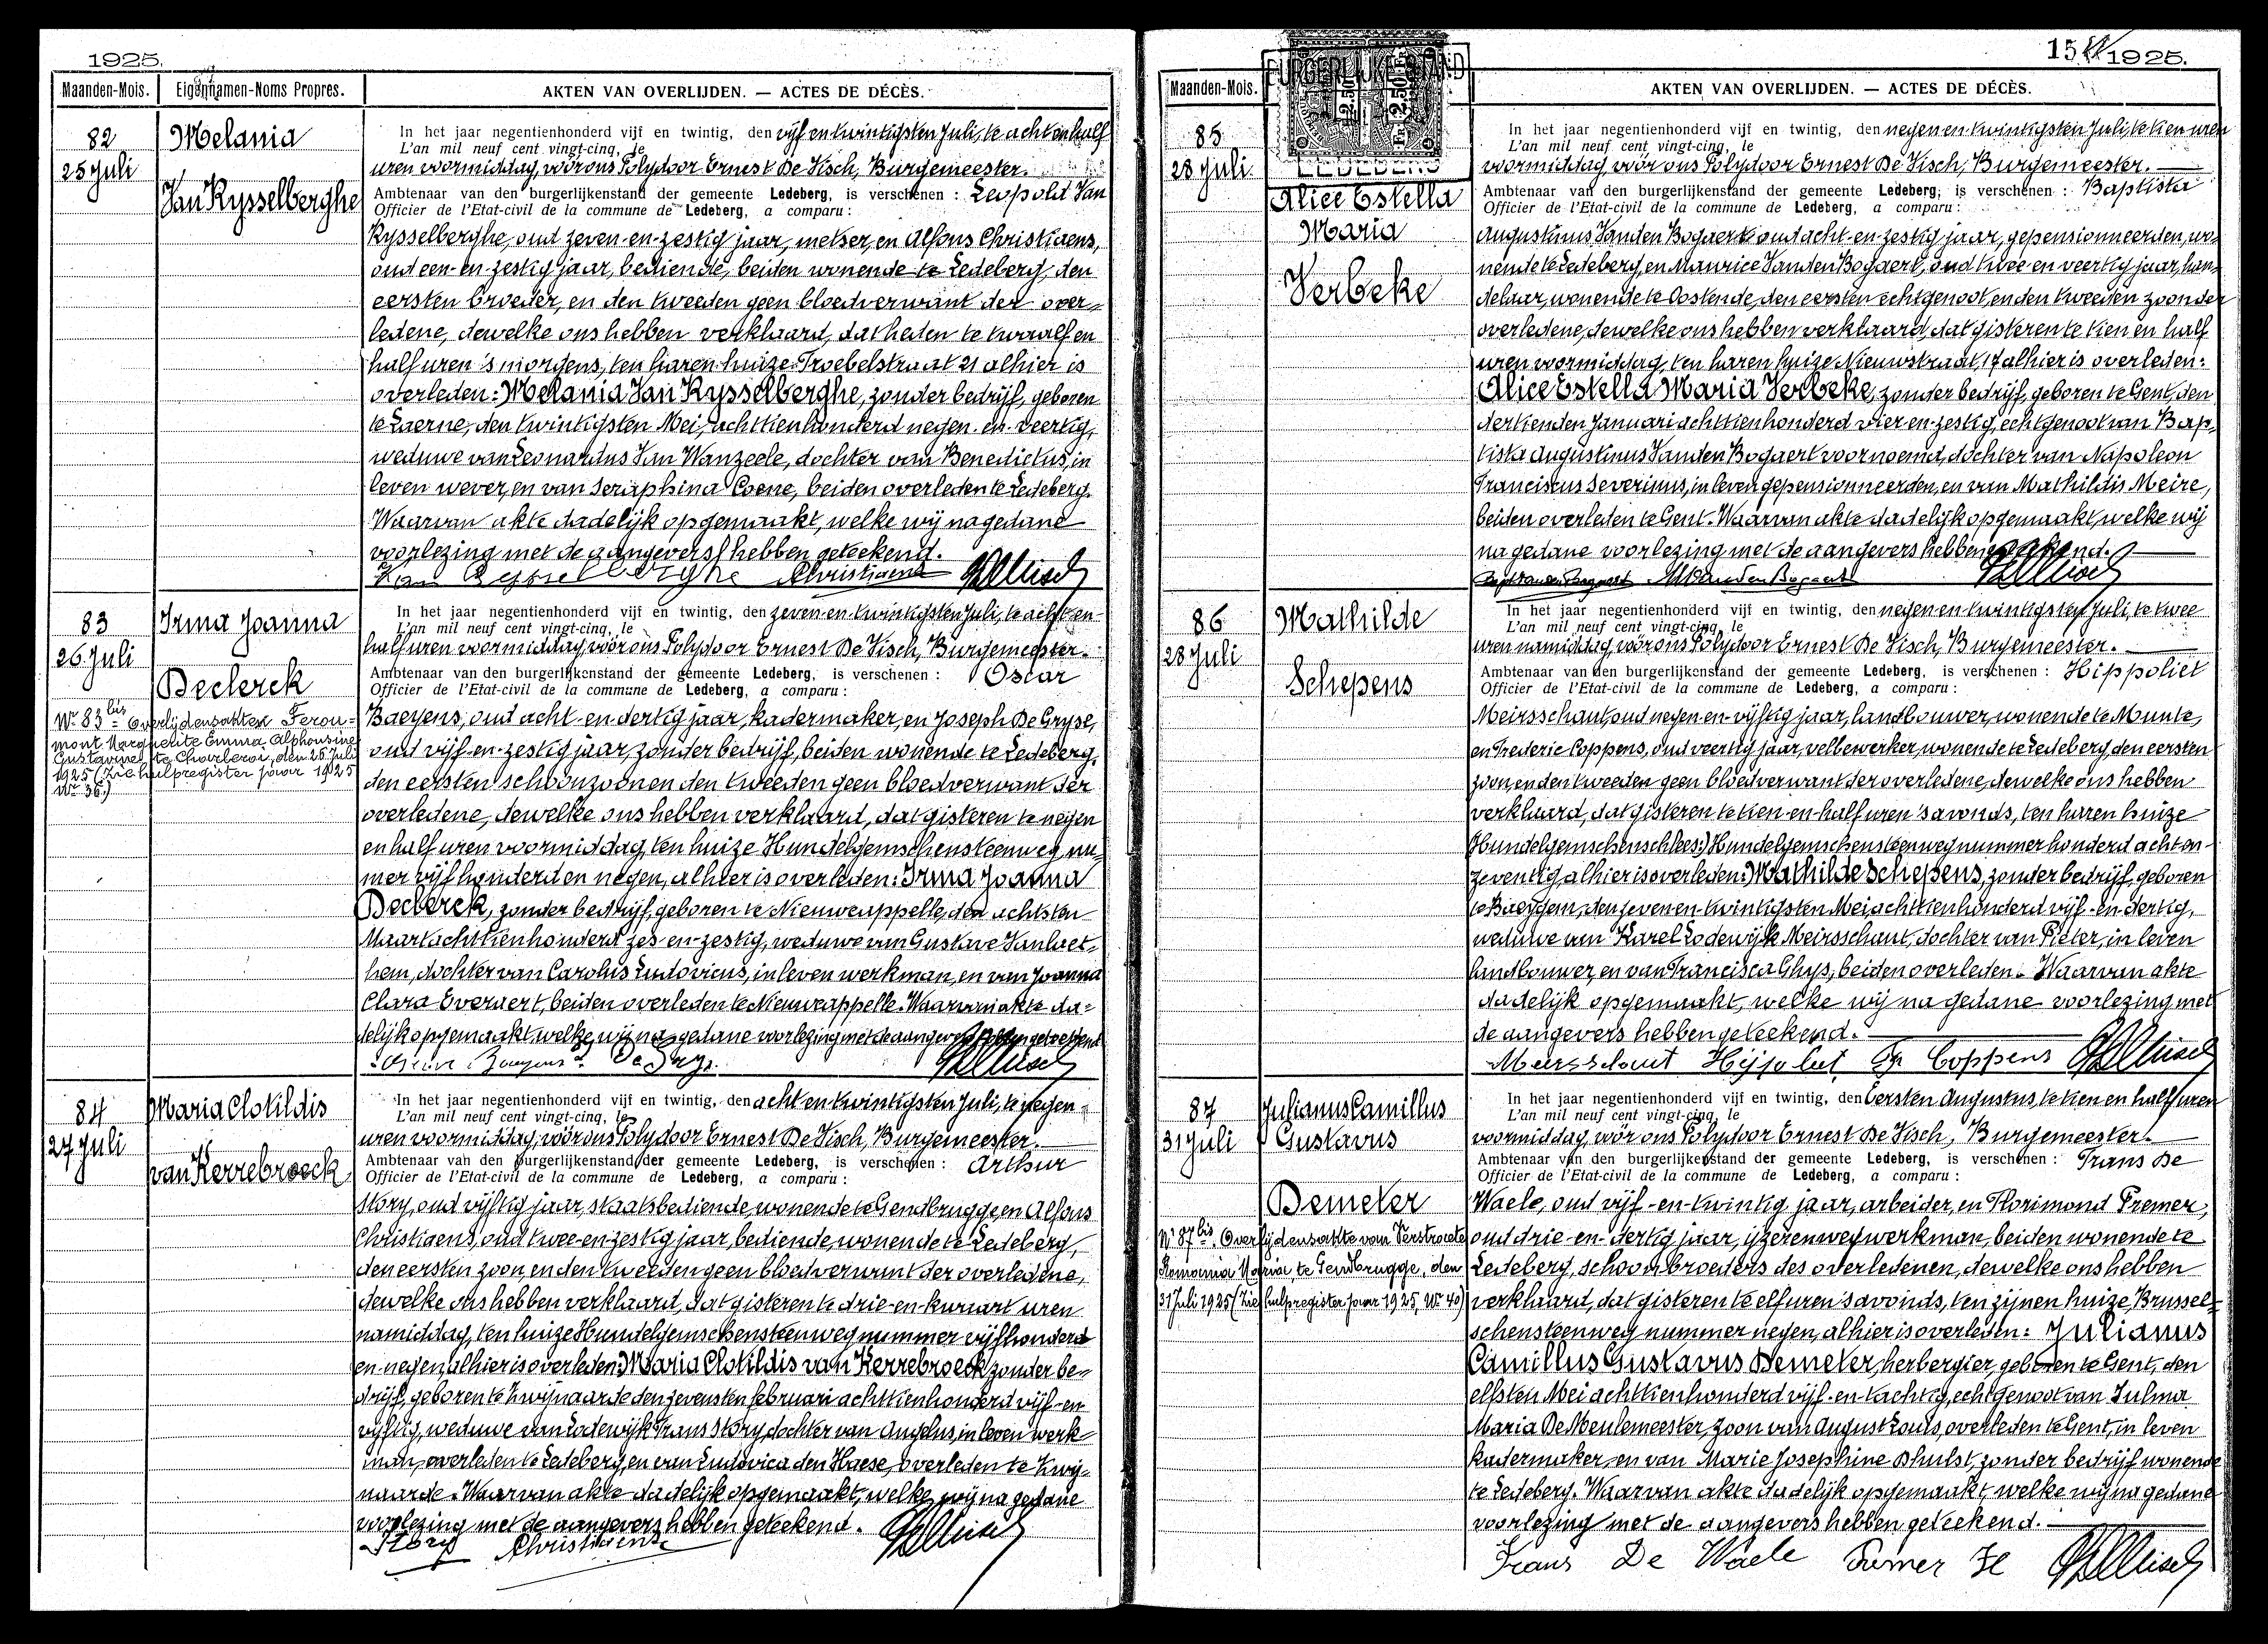 1925.
Maanden-Mois. Eigennamen-Noms Propres. AKTEN VAN OVERLIJDEN. — ACTES DE DÉCÈS.
82
25 Juli
Melania
Van Rysselberghe
In het jaar negentienhonderd vijf en twintig, den vijf en twintigsten Juli, te acht en half
L'an mil neuf cent vingt-cinq, le
uren voormiddag, vóór ons Polydoor Ernest De Visch, Burgemeester.
Ambtenaar van den burgerlijkenstand der gemeente Ledeberg, is verschenen : Leopold Van
Officier de l'Etat-civil de la commune de Ledeberg, a comparu :
Rysselberghe, oud zeven-en-zestig jaar, metser, en Alfons Christiaens,
oud een-en-zestig jaar, bediende, beiden wonende te Ledeberg, den
eersten broeder, en den tweeden geen bloedverwant der over=
ledene, dewelke ons hebben verklaard, dat heden te twaalf en
half uren 's morgens, ten haren huize Froebelstraat 21 alhier is
overleden: Melania Van Rysselberghe, zonder bedrijf, geboren
te Laerne, den twintigsten Mei, achttienhonderd negen-en-veertig,
weduwe van Leonardus Van Wanzeele, dochter van Benedictus, in
leven wever, en van Seraphina Coene, beiden overleden te Ledeberg.
Waarvan akte dadelijk opgemaakt, welke wij na gedane
voorlezing met de aangevers hebben geteekend.
Van Rysselberghe Christiaens
83
26 Juli
Irma Joanna
Declerck
Nr 83 bis = Overlijdensakten Ferou=
mont Marguerite Emma Alphonsine
Gustavine te Charleroi, den 26 Juli
1925 (Zie hulpregister jaar 1925
Nr 36.)
In het jaar negentienhonderd vijf en twintig, den zeven-en-twintigsten Juli, te acht en
L'an mil neuf cent vingt-cinq, le
half uren voormiddag, vóór ons Polydoor Ernest De Visch, Burgemeester.
Ambtenaar van den burgerlijkenstand der gemeente Ledeberg, is verschenen : Oscar
Officier de l'Etat-civil de la commune de Ledeberg, a comparu :
Baeyens, oud acht-en-dertig jaar, kadermaker, en Joseph De Gryse,
oud vijf-en-zestig jaar, zonder bedrijf, beiden wonende te Ledeberg,
den eersten schoonzoon en den tweeden geen bloedverwant der
overledene, dewelke ons hebben verklaard, dat gisteren te negen
en half uren voormiddag, ten huize Hundelgemschensteenweg num=
mer vijf honderd en negen, alhier is overleden: Irma Joanna
Declerck, zonder bedrijf, geboren te Nieuwcappelle, den achtsten
Maart achttienhonderd zes-en-zestig, weduwe van Gustave Vanhaet=
hem, dochter van Carolus Ludovicus, in leven werkman, en van Joanna
Clara Everaert, beiden overleden te Nieuwcappelle. Waarvan akte da=
delijk opgemaakt, welke wij na gedane voorlezing met de aangevers hebben geteekend
Baeyens De Gryse
84
27 Juli
Maria Clotildis
van Kerrebroeck
In het jaar negentienhonderd vijf en twintig, den acht en twintigsten Juli, te negen
L'an mil neuf cent vingt-cinq, le
uren voormiddag, vóór ons Polydoor Ernest De Visch, Burgemeester.
Ambtenaar van den burgerlijkenstand der gemeente Ledeberg, is verschenen : Arthur
Officier de l'Etat-civil de la commune de Ledeberg, a comparu :
Story, oud vijftig jaar, staatsbediende, wonende te Gendbrugge, en Alfons
Christiaens, oud twee-en-zestig jaar, bediende, wonende te Ledeberg,
den eersten zoon, en den tweeden geen bloedverwant der overledene,
dewelke ons hebben verklaard, dat gisteren te drie-en-kwaart uren
namiddag, ten huize Hundelgemschensteenweg nummer vijfhonderd
en negen, alhier is overleden: Maria Clotildis van Kerrebroeck zonder be=
drijf, geboren te Zwijnaarde den zevensten februari achttienhonderd vijf-en
vijftig, weduwe van Lodewijk Frans Story, dochter van Angelus, in leven werk=
man, overleden te Ledeberg, en van Ludovica den Haese, overleden te Zwij=
naarde. Waarvan akte dadelijk opgemaakt, welke wij na gedane
voorlezing met de aangevers hebben geteekend.
Story Christiaens
15 1925.
Maanden-Mois. BURGERLIJKE STAND AKTEN VAN OVERLIJDEN. — ACTES DE DÉCÈS.
LEDEBERG
85
28 Juli
Alice Estella
Maria
Verbeke
In het jaar negentienhonderd vijf en twintig, den negen en twintigsten Juli, te tien uren
L'an mil neuf cent vingt-cinq, le
voormiddag, vóór ons Polydoor Ernest De Visch, Burgemeester.
Ambtenaar van den burgerlijkenstand der gemeente Ledeberg, is verschenen : Baptista
Officier de l'Etat-civil de la commune de Ledeberg, a comparu :
Augustinus Vanden Bogaert oud acht-en-zestig jaar, gepensionneerden, wo=
nende te Ledeberg, en Maurice Vanden Bogaert, oud twee en veertig jaar, han=
delaar, wonende te Oostende, den eersten echtgenoot, en den tweeden zoon der
overledene, dewelke ons hebben verklaard, dat gisteren te tien en half
uren voormiddag, ten haren huize Nieuwstraat, 17 alhier is overleden:
Alice Estella Maria Verbeke, zonder bedrijf, geboren te Gent, den
dertienden Januari achttienhonderd vier-en-zestig, echtgenoot van Bap=
tista Augustinus Vanden Bogaert voornoemd, dochter van Napoleon
Franciscus Severinus, in leven gepensionneerden, en van Mathildis Meire,
beiden overleden te Gent. Waarvan akte dadelijk opgemaakt, welke wij
na gedane voorlezing met de aangevers hebben geteekend.
Bapt Vanden Bogaert M Vanden Bogaert
86
28 Juli
Mathilde
Schepens
In het jaar negentienhonderd vijf en twintig, den negen en twintigsten Juli, te twee
L'an mil neuf cent vingt-cinq, le
uren namiddag, vóór ons Polydoor Ernest De Visch, Burgemeester.
Ambtenaar van den burgerlijkenstand der gemeente Ledeberg, is verschenen : Hippoliet
Officier de l'Etat-civil de la commune de Ledeberg, a comparu :
Meirsschaut, oud negen-en-vijftig jaar, landbouwer, wonende te Munte,
en Frederic Coppens, oud veertig jaar, velbewerker, wonende te Ledeberg, den eersten
zoon, en den tweeden geen bloedverwant der overledene, dewelke ons hebben
verklaard, dat gisteren te tien-en-half uren 's avonds, ten haren huize
Hundelgemschensch (lees:) Hundelgemschensteenweg nummer honderd acht en-
zeventig, alhier is overleden: Mathilde Schepens, zonder bedrijf, geboren
te Baeygem, den zeven en-twintigsten Mei, achttienhonderd vijf-en-dertig,
weduwe van Karel Lodewijk Meirsschaut, dochter van Pieter, in leven
landbouwer, en van Francisca Ghys, beiden overleden. Waarvan akte
dadelijk opgemaakt, welke wij na gedane voorlezing met
de aangevers hebben geteekend.
Meersschaut Hippoliet Fr Coppens
87
31 Juli
Julianus Camillus
Gustavus
Demeter
Nr 87 bis. Overlijdensakte van Verstraete
Romania Maria te Gendbrugge, den
31 Juli 1925 (Zie hulpregister jaar 1925, Nr 40)
In het jaar negentienhonderd vijf en twintig, den Eersten Augustus, te tien en half uren
L'an mil neuf cent vingt-cinq, le
voormiddag, vóór ons Polydoor Ernest De Visch, Burgemeester.
Ambtenaar van den burgerlijkenstand der gemeente Ledeberg, is verschenen : Frans De
Officier de l'Etat-civil de la commune de Ledeberg, a comparu :
Waele, oud vijf-en-twintig jaar, arbeider, en Florimond Fremer,
oud drie-en-dertig jaar, ijzerenwegwerkman, beiden wonende te
Ledeberg, schoonbroeders des overledenen, dewelke ons hebben
verklaard, dat gisteren te elf uren 's avonds, ten zijnen huize, Brussel=
schensteenweg nummer negen, alhier is overleden: Julianus
Camillus Gustavus Demeter, herbergier, geboren te Gent, den
elfsten Mei achttienhonderd vijf-en-tachtig, echtgenoot van Zulma
Maria De Meulemeester, zoon van August Louis, overleden te Gent, in leven
kadermaker, en van Marie Josephine Dhulst, zonder bedrijf wonende
te Ledeberg. Waarvan akte dadelijk opgemaakt, welke wij na gedane
voorlezing met de aangevers hebben geteekend.
Frans De Waele Fremer Fl